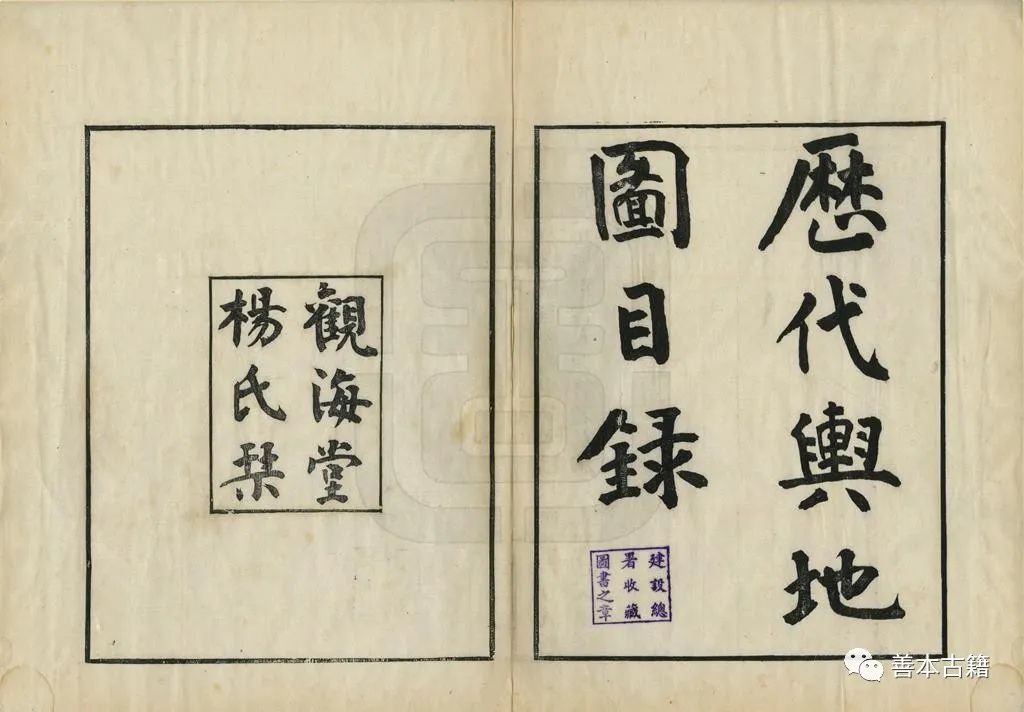 歷代輿地
圖目録
建設總
署收藏
圖書之章
觀海堂
楊氏栞
善本古籍